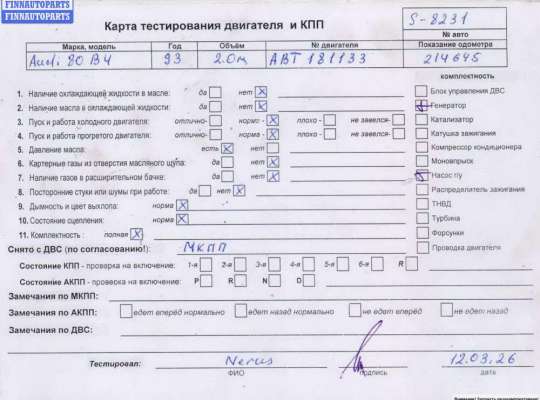 FINNAUTOPARTS
FINNAUTOPARTS
Карта тестирования двигателя и КПП
S-8231
№ авто
Марка, модель Год Объём № двигателя Показание одометра
Audi 80 B4 93 2.0м ABT 181133 214645
комплектность
1. Наличие охлаждающей жидкости в масле: да нет X
2. Наличие масла в охлаждающей жидкости: да нет X
3. Пуск и работа холодного двигателя: отлично- норма - X плохо - не завелся-
4. Пуск и работа прогретого двигателя: отлично- норма - плохо - не завелся-
5. Давление масла: есть X нет
6. Картерные газы из отверстия масляного щупа: да нет X
7. Наличие газов в расширительном бачке: да нет X
8. Посторонние стуки или шумы при работе: да нет X
9. Дымность и цвет выхлопа: норма X
10. Состояние сцепления: норма X
11. Комплектность : полная X
Блок управления ДВС
Генератор
Катализатор
Катушка зажигания
Компрессор кондиционера
Моновпрыск
Насос гу
Распределитель зажигания
ТНВД
Турбина
Форсунки
Проводка двигателя
Снято с ДВС (по согласованию!): МКПП
Состояние КПП - проверка на включение: 1-я 2-я 3-я 4-я 5-я 6-я R
Состояние АКПП - проверка на включение: P R N D
Замечания по МКПП:
Замечания по АКПП: едет вперёд нормально едет назад нормально не едет вперёд не едет назад
Замечания по ДВС:
Тестировал: Nerus 12.03.26
ФИО подпись дата